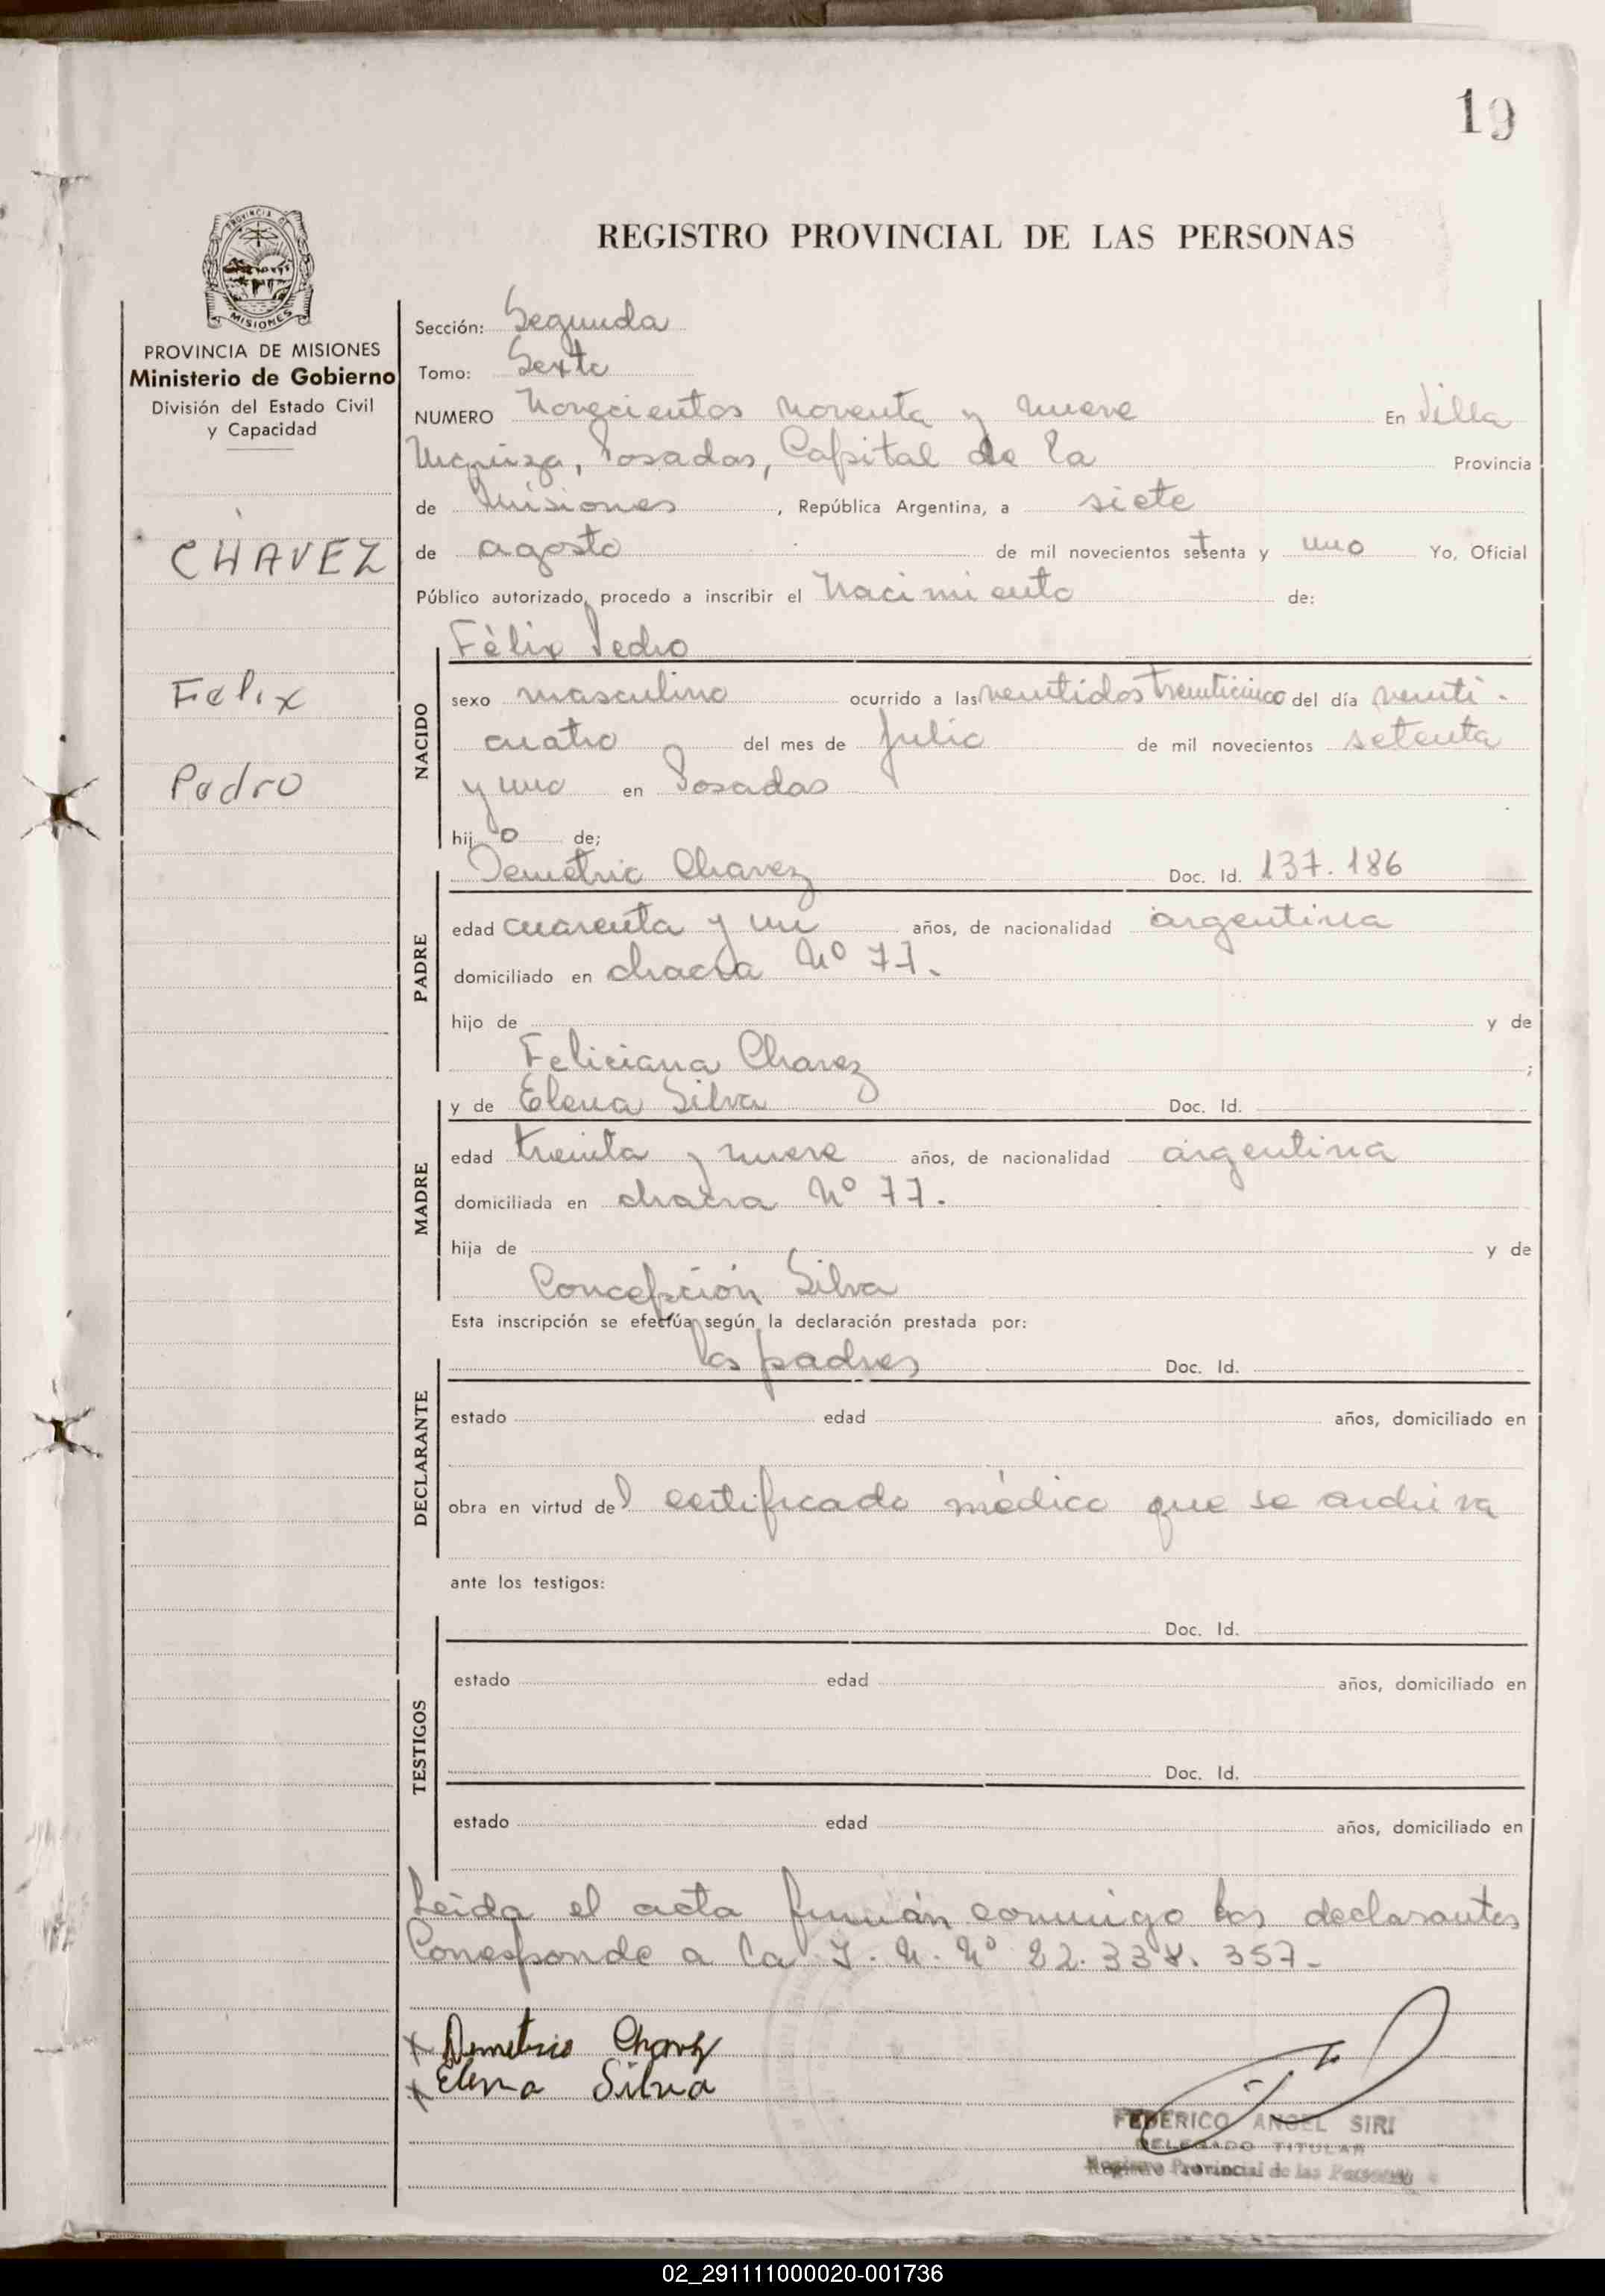 19
PROVINCIA DE
MISIONES
REGISTRO PROVINCIAL DE LAS PERSONAS
PROVINCIA DE MISIONES
Ministerio de Gobierno
División del Estado Civil
y Capacidad
CHAVEZ
Felix
Pedro
Sección: Segunda
Tomo: Sexto
NUMERO Novecientos noventa y nueve En Villa
Urquiza, Posadas, Capital de la Provincia
de Misiones, República Argentina, a siete
de agosto de mil novecientos setenta y uno Yo, Oficial
Público autorizado, procedo a inscribir el Nacimiento de:
NACIDO
Félix Pedro
sexo masculino ocurrido a las veintidos treinticinco del día veinti-
cuatro del mes de julio de mil novecientos setenta
y uno en Posadas
hij o de;
PADRE
Demetrio Chavez Doc. Id. 137.186
edad cuarenta y un años, de nacionalidad argentina
domiciliado en chacra Nº 77.
hijo de y de
Feliciana Chavez ;
MADRE
y de Elena Silva Doc. Id.
edad treinta y nueve años, de nacionalidad argentina
domiciliada en chacra Nº 77.
hija de y de
Concepción Silva
Esta inscripción se efectúa según la declaración prestada por:
DECLARANTE
los padres Doc. Id.
estado edad años, domiciliado en
obra en virtud del certificado médico que se archiva
ante los testigos:
TESTIGOS
Doc. Id.
estado edad años, domiciliado en
Doc. Id.
estado edad años, domiciliado en
Leida el acta firman conmigo los declarantes
Corresponde a la I. N. Nº 22.338.357-
x Demetrio Chavez
x Elena Silva
FEDERICO ANGEL SIRI
DELEGADO TITULAR
Registro Provincial de las Personas
02_291111000020-001736